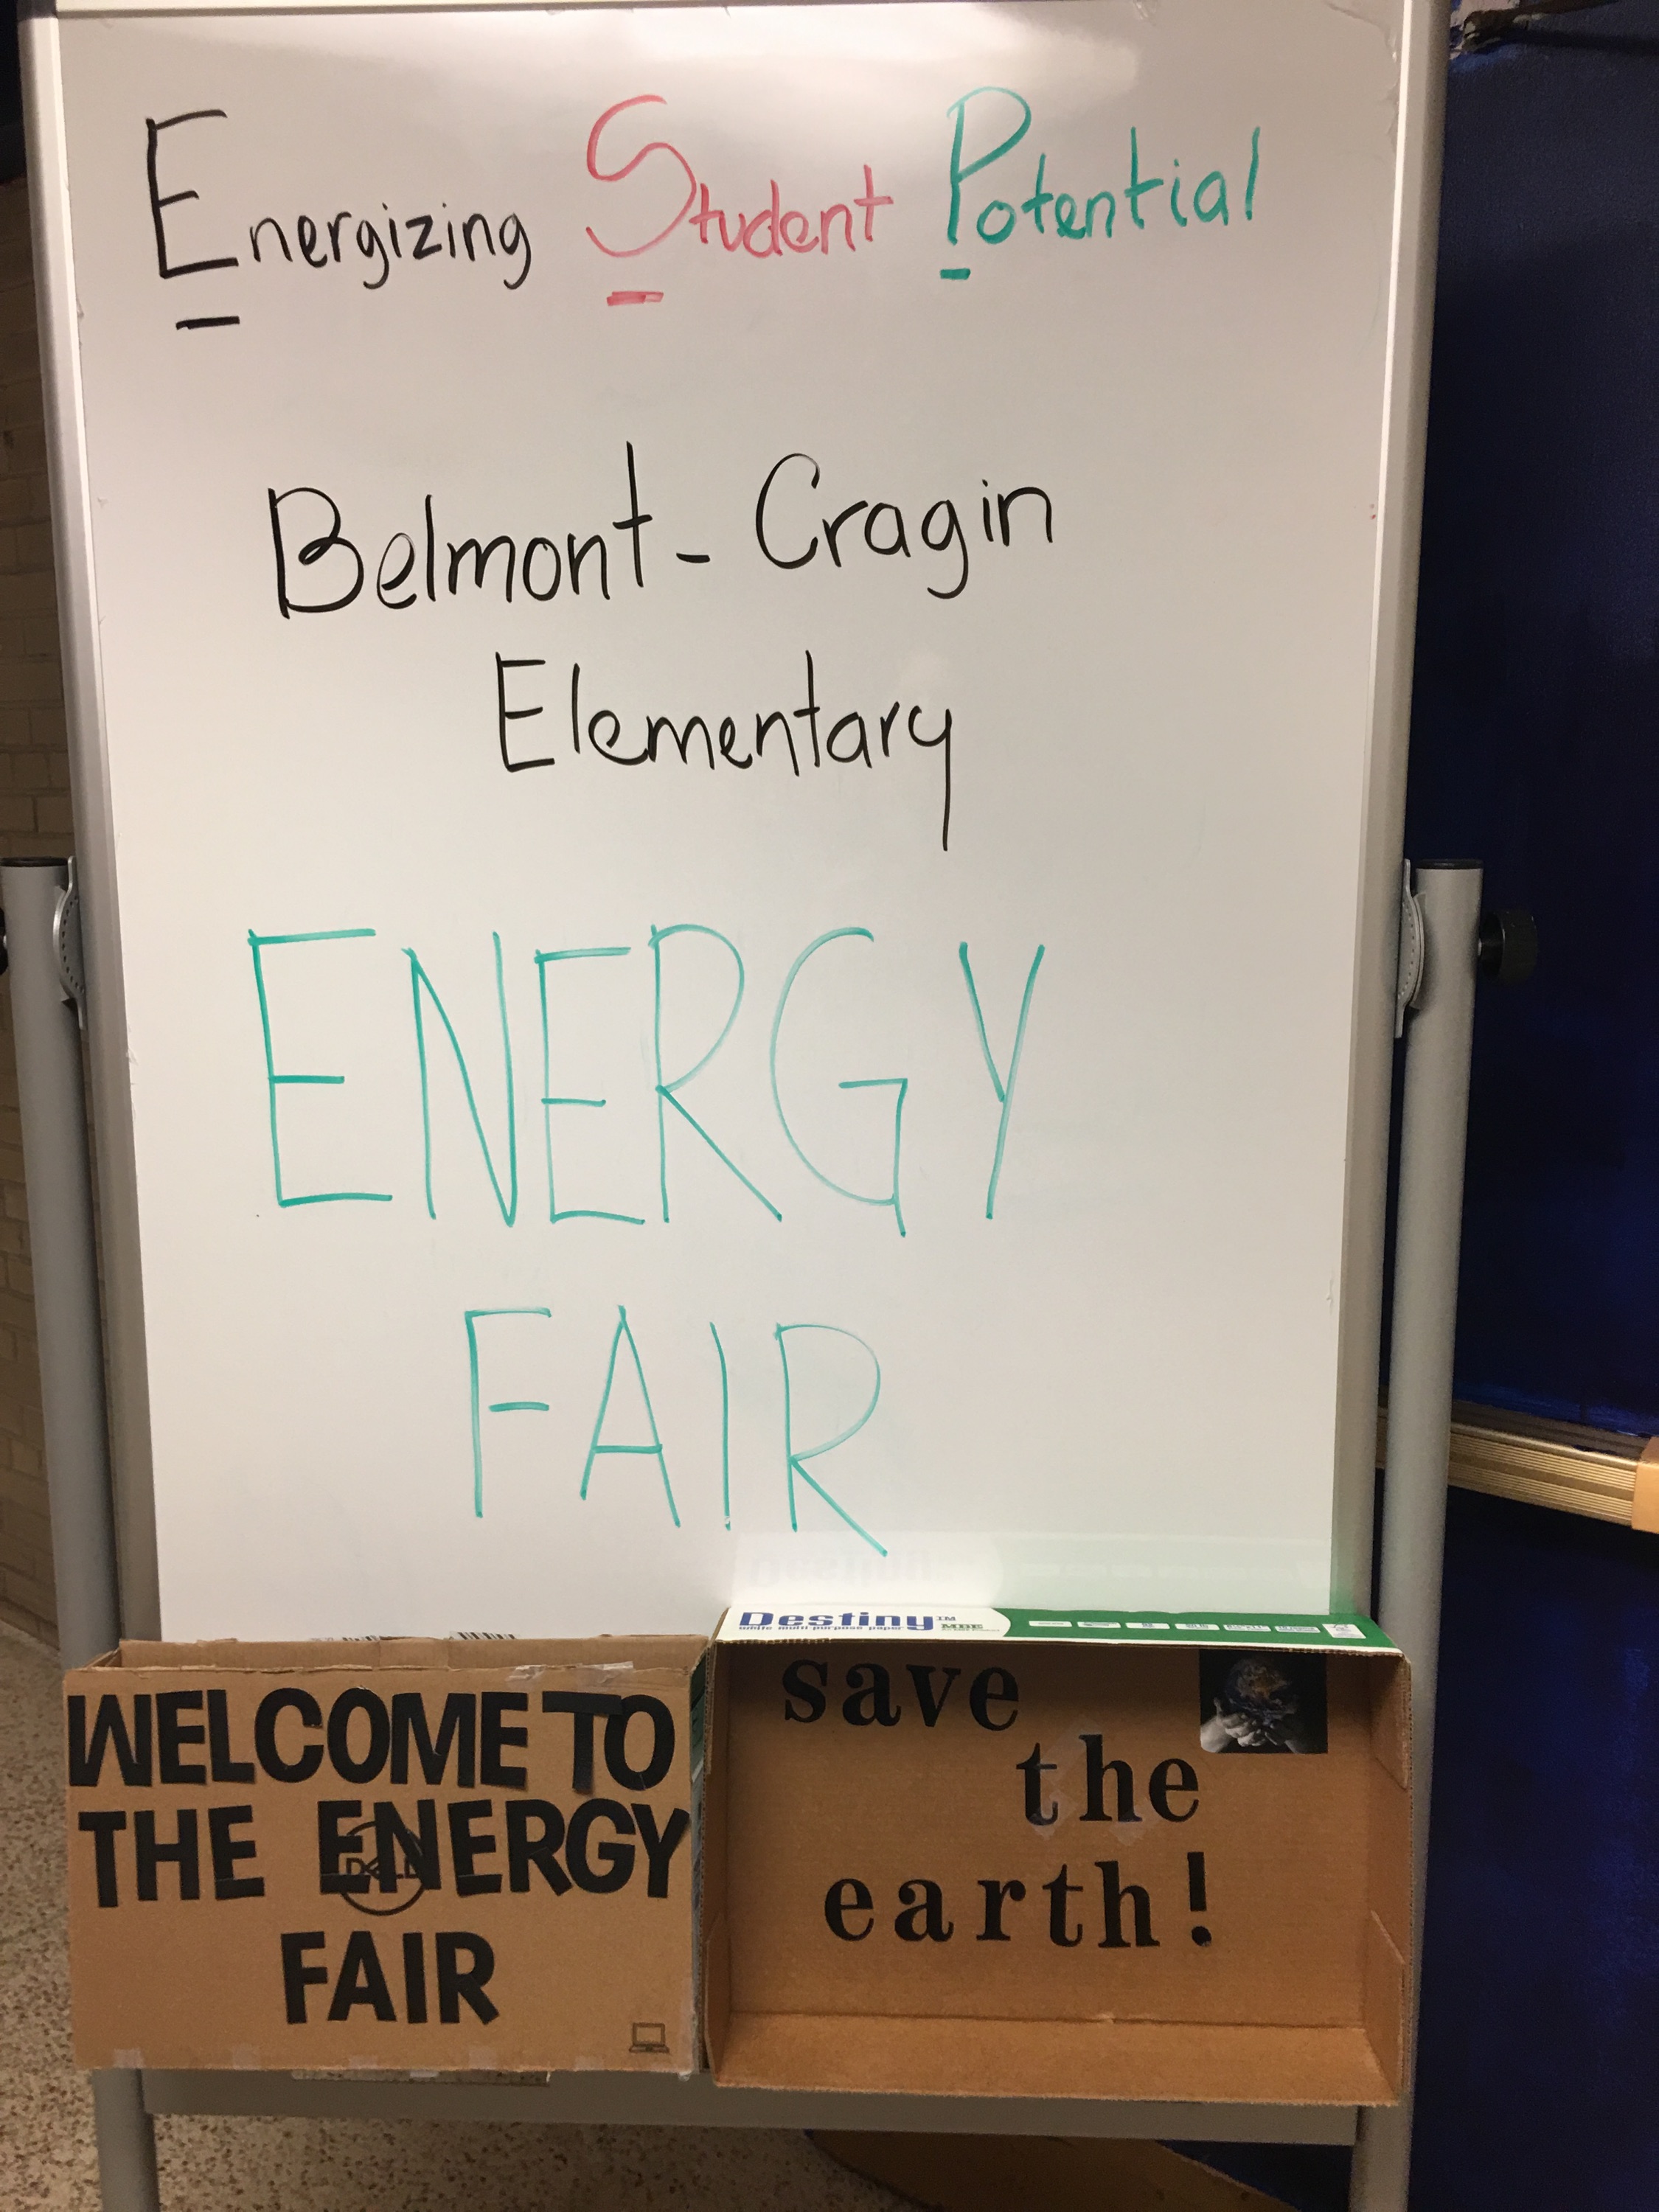 Energizing Student Potential
Belmont - Cragin
Elementary
ENERGY
FAIR
Destiny TM
white multi purpose paper
MBE
WELCOME TO
THE ENERGY
FAIR
DELL
save
the
earth!